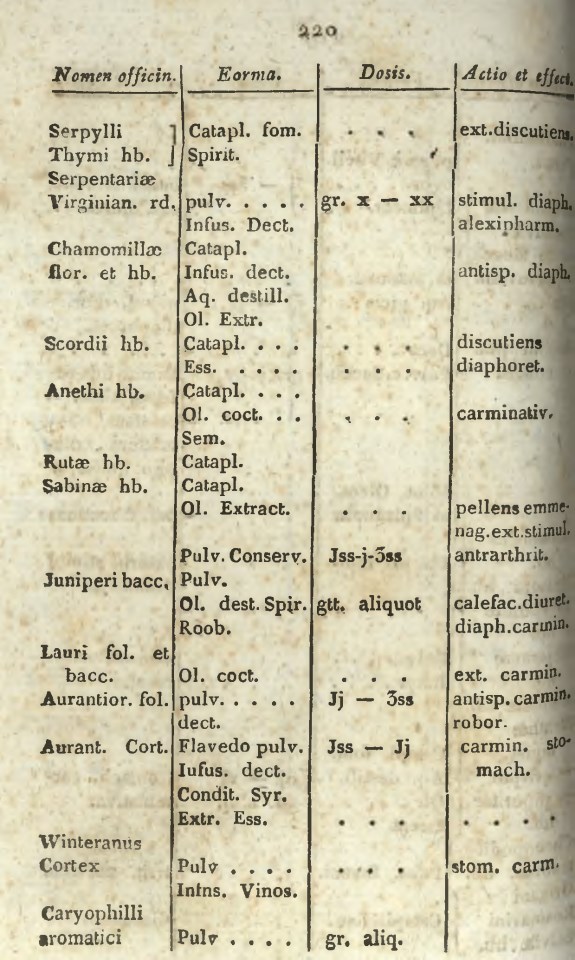 220
Nomen officin. Eorma. Dosis. Actio et effect.
Serpylli ] Catapl. fom. . . . ext.discutiens,
Thymi hb. ] Spirit.
Serpentariæ
Virginian. rd, pulv. . . . . gr. x — xx stimul. diaph.
Infus. Dect. alexipharm.
Chamomillæ Catapl.
flor. et hb. Infus. dect. antisp. diaph.
Aq. destill.
Ol. Extr.
Scordii hb. Catapl. . . . . . . discutiens
Ess. . . . . . . . diaphoret.
Anethi hb. Catapl. . . .
Ol. coct. . . . . . carminativ.
Sem.
Rutæ hb. Catapl.
Sabinæ hb. Catapl.
Ol. Extract. . . . pellens emme-
nag.ext.stimul.
Pulv. Conserv. Jss-j-3ss antrarthrit.
Juniperi bacc, Pulv.
Ol. dest. Spir. gtt. aliquot calefac.diuret.
Roob. diaph.carmin.
Lauri fol. et
bacc. Ol. coct. . . . ext. carmin.
Aurantior. fol. pulv. . . . . Jj — 3ss antisp. carmin.
dect. robor.
Aurant. Cort. Flavedo pulv. Jss — Jj carmin. sto-
Iufus. dect. mach.
Condit. Syr.
Extr. Ess. . . . . . . .
Winteranus
Cortex Pulv . . . . . . . stom. carm.
Intns. Vinos.
Caryophilli
aromatici Pulv . . . . gr. aliq.